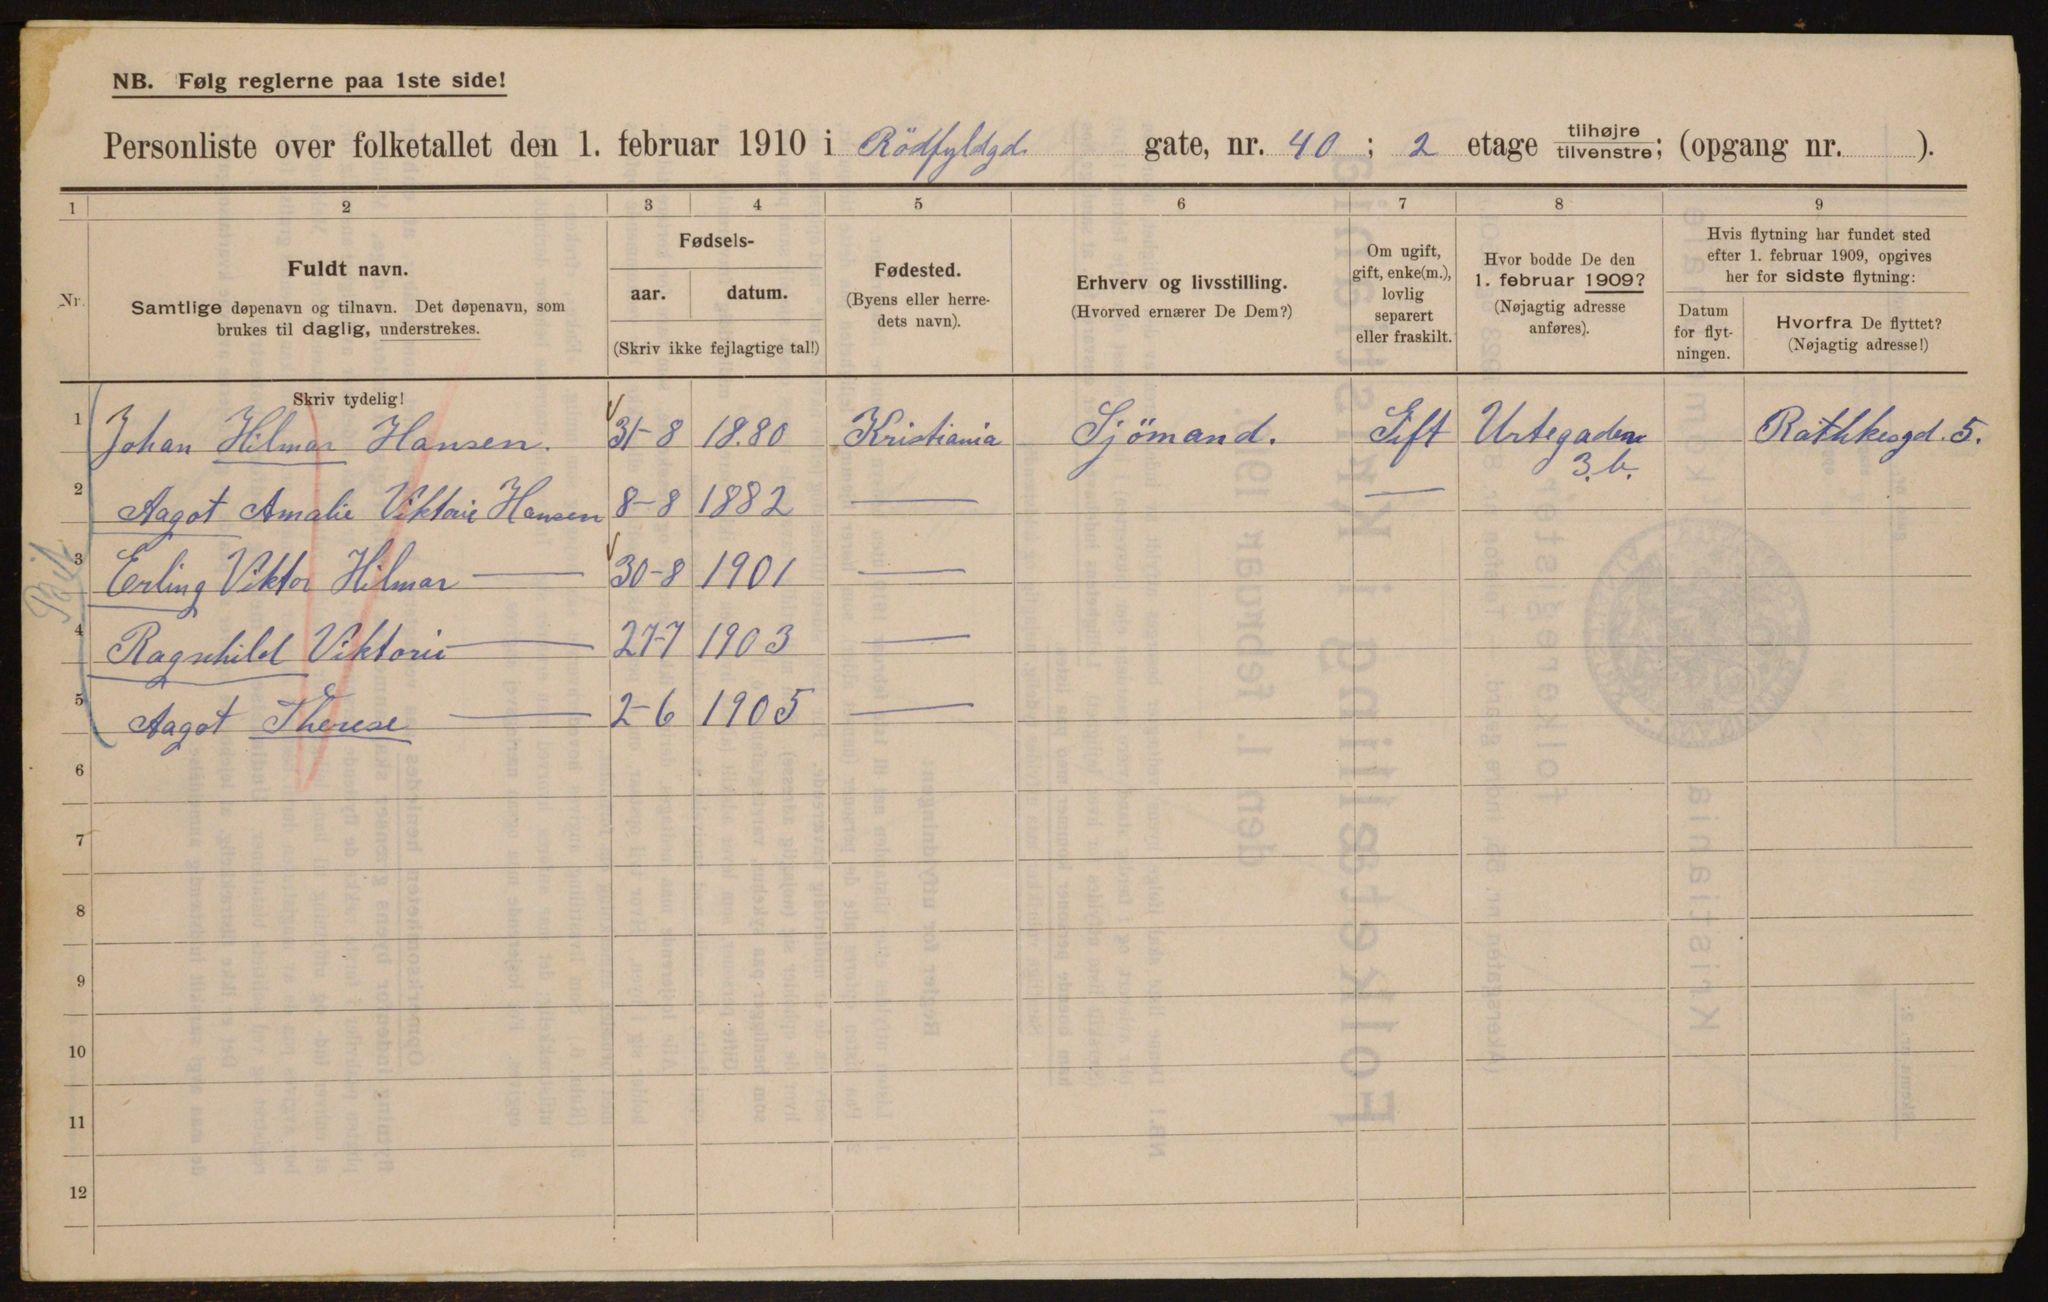 NB. Følg reglerne paa 1ste side!
Personliste over folketallet den 1. februar 1910 i Rödfyldgd. gate, nr. 40; 2 etage tilhøjre tilvenstre; (opgang nr. ).
1 2 3 4 5 6 7 8 9
Nr.
Fuldt navn.
Samtlige døpenavn og tilnavn. Det døpenavn, som
brukes til daglig, understrekes.
Fødsels-
aar. datum.
(Skriv ikke fejlagtige tal!)
Fødested.
(Byens eller herre-
dets navn).
Erhverv og livsstilling.
(Hvorved ernærer De Dem?)
Om ugift,
gift, enke(m.),
lovlig
separert
eller fraskilt.
Hvor bodde De den
1. februar 1909?
(Nøjagtig adresse
anføres).
Hvis flytning har fundet sted
efter 1. februar 1909, opgives
her for sidste flytning:
Datum
for flyt-
ningen.
Hvorfra De flyttet?
(Nøjagtig adresse!)
Skriv tydelig!
1 Johan Hilmar Hansen. 31-8 18.80 Kristiania Sjömand. Gift Urtegaden 3.b. Rathkesgd. 5.
2 Aagot Amalie Viktorie Hansen 8-8 1882 — —
3 Erling Viktor Hilmar — 30-8 1901 —
4 Ragnhild Viktorie — 27-7 1903 —
5 Aagot Therese — 2-6 1905 —
6
7
8
9
10
11
12